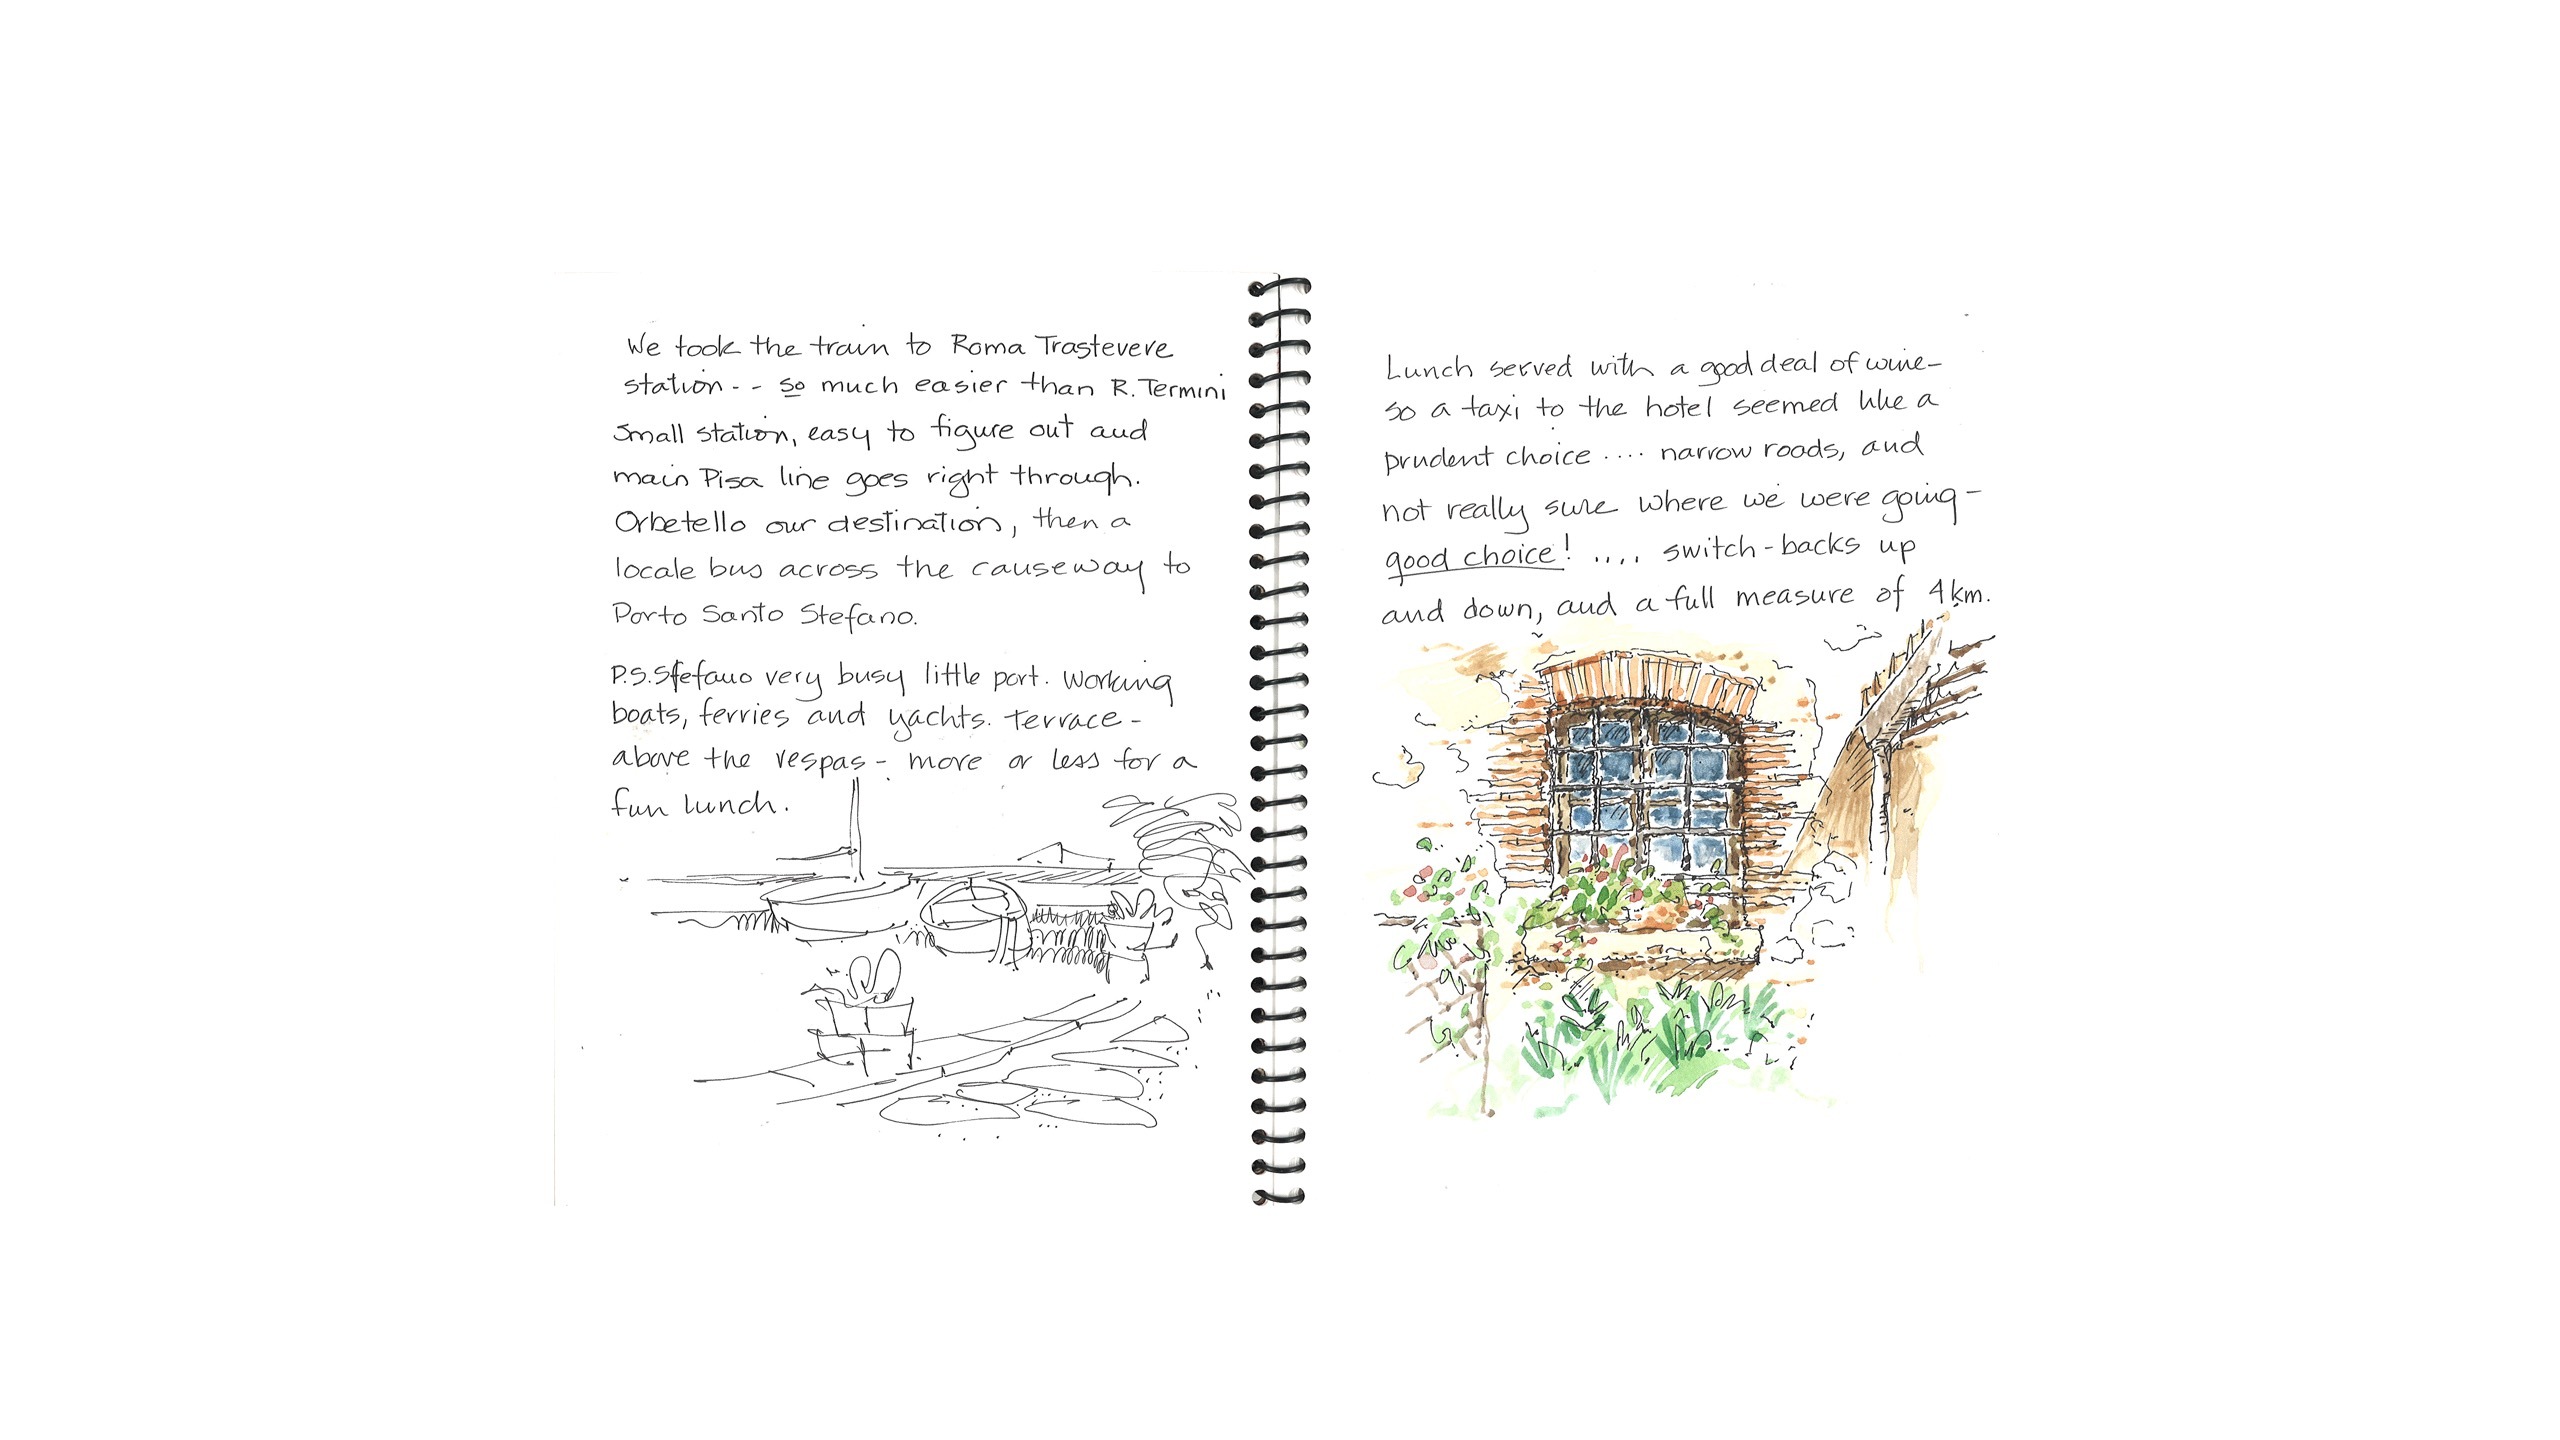 We took the train to Roma Trastevere
station-- so much easier than R. Termini
Small station, easy to figure out and
main Pisa line goes right through.
Orbetello our destination, then a
locale bus across the causeway to
Porto Santo Stefano.
P.S. Stefano very busy little port. Working
boats, ferries and yachts. Terrace-
above the vespas- more or less for a
fun lunch.
Lunch served with a good deal of wine-
so a taxi to the hotel seemed like a
prudent choice .... narrow roads, and
not really sure where we were going-
good choice! .... switch-backs up
and down, and a full measure of 4km.